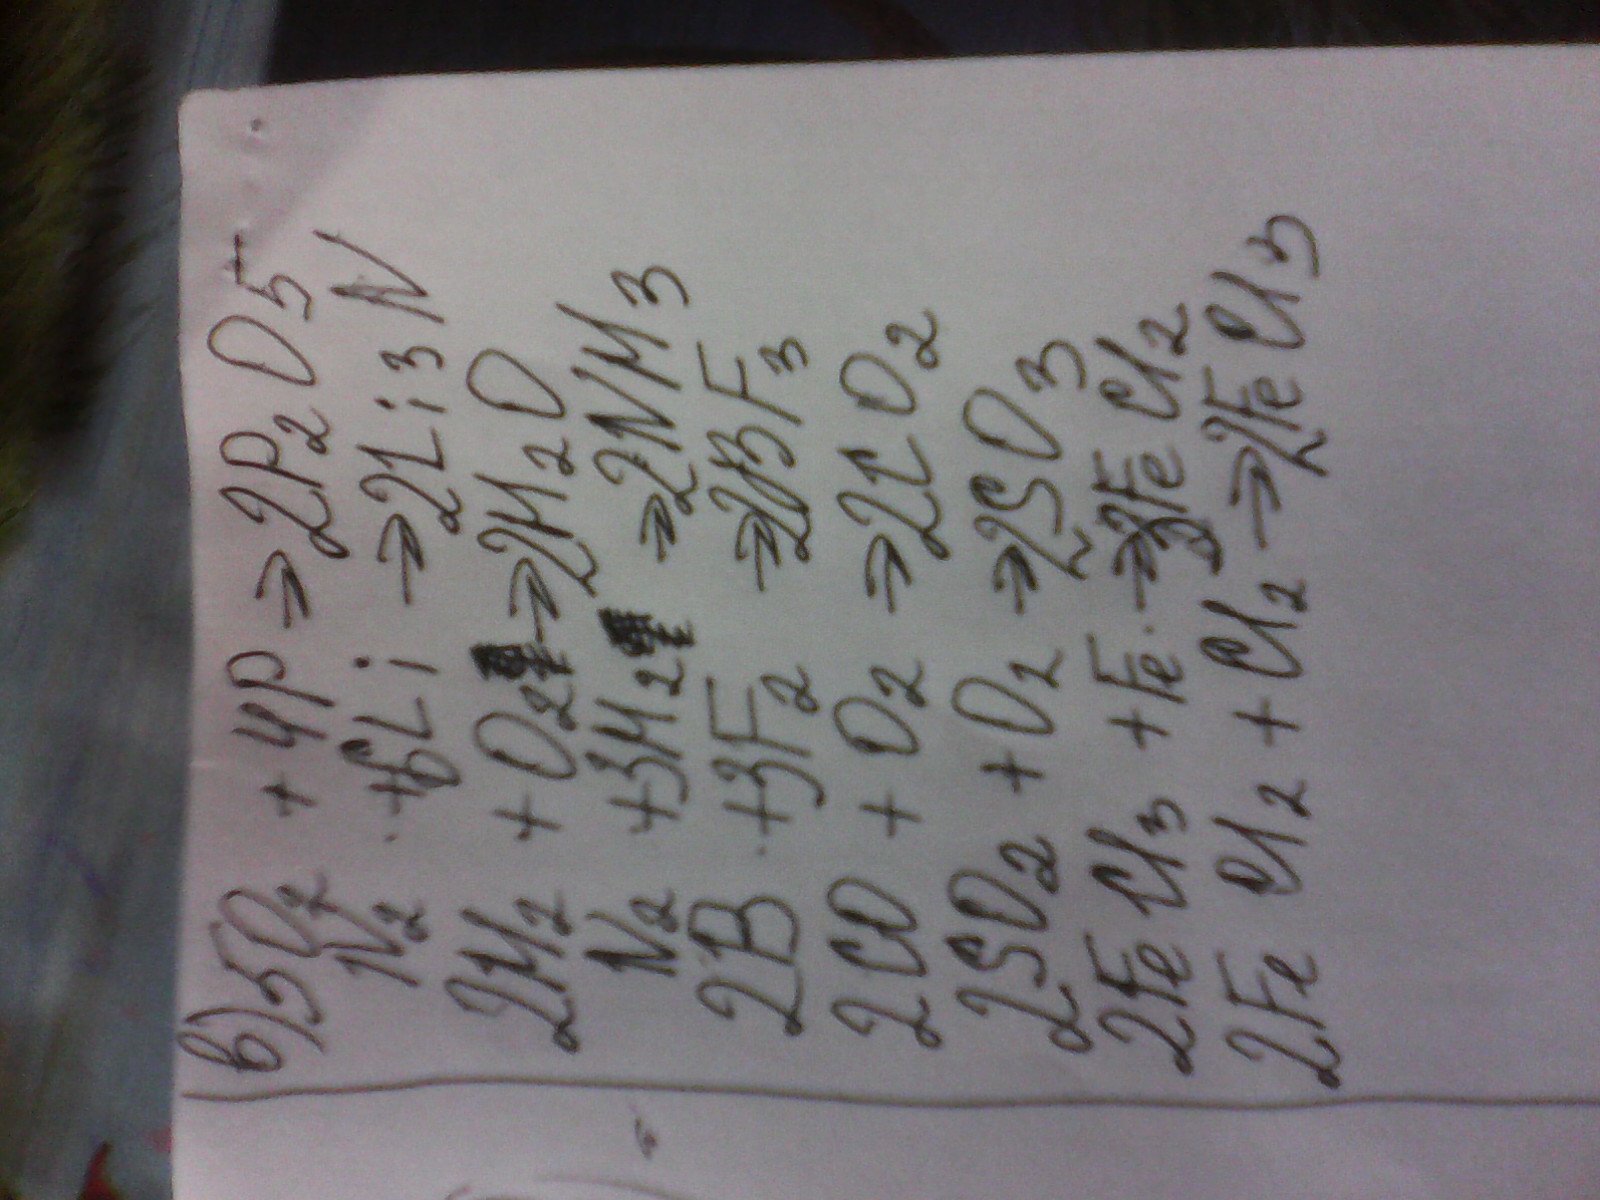 в) 5O₂ + 4P → 2P₂O₅
N₂ + 6Li → 2Li₃N
2H₂ + O₂ → 2H₂O
N₂ + 3H₂ → 2NH₃
2B + 3F₂ → 2BF₃
2CO + O₂ → 2CO₂
2SO₂ + O₂ → 2SO₃
2FeCl₃ + Fe → 3FeCl₂
2FeCl₂ + Cl₂ → 2FeCl₃